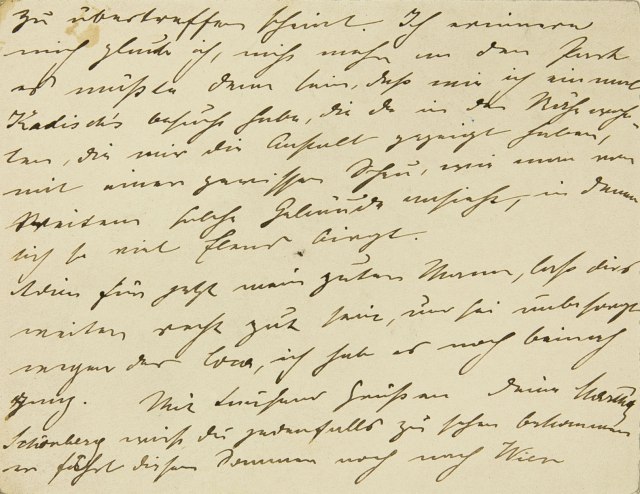 zu übertreffen scheint. Ich erinnere
mich glaub ich, nicht mehr an den Park
es müßte denn sein, daß wie ich einmal
Kadisch's besucht habe, die da in der Nähe wohn-
ten, die mir die Anstalt gezeigt haben,
mit einer gewissen Scheu, wie man von
Weitem solche Gebäude ansieht, in denen
sich so viel Elend birgt.
Adieu für jetzt mein guter Mann, laß dirs
weiter recht gut sein, und sei unbesorgt
wegen der Coca, ich hab es noch beinah
ganz. Mit tausend Grüßen deine
Schönberg wirst du jedenfalls zu sehen bekommen
er fährt diesen Sommer noch nach Wien